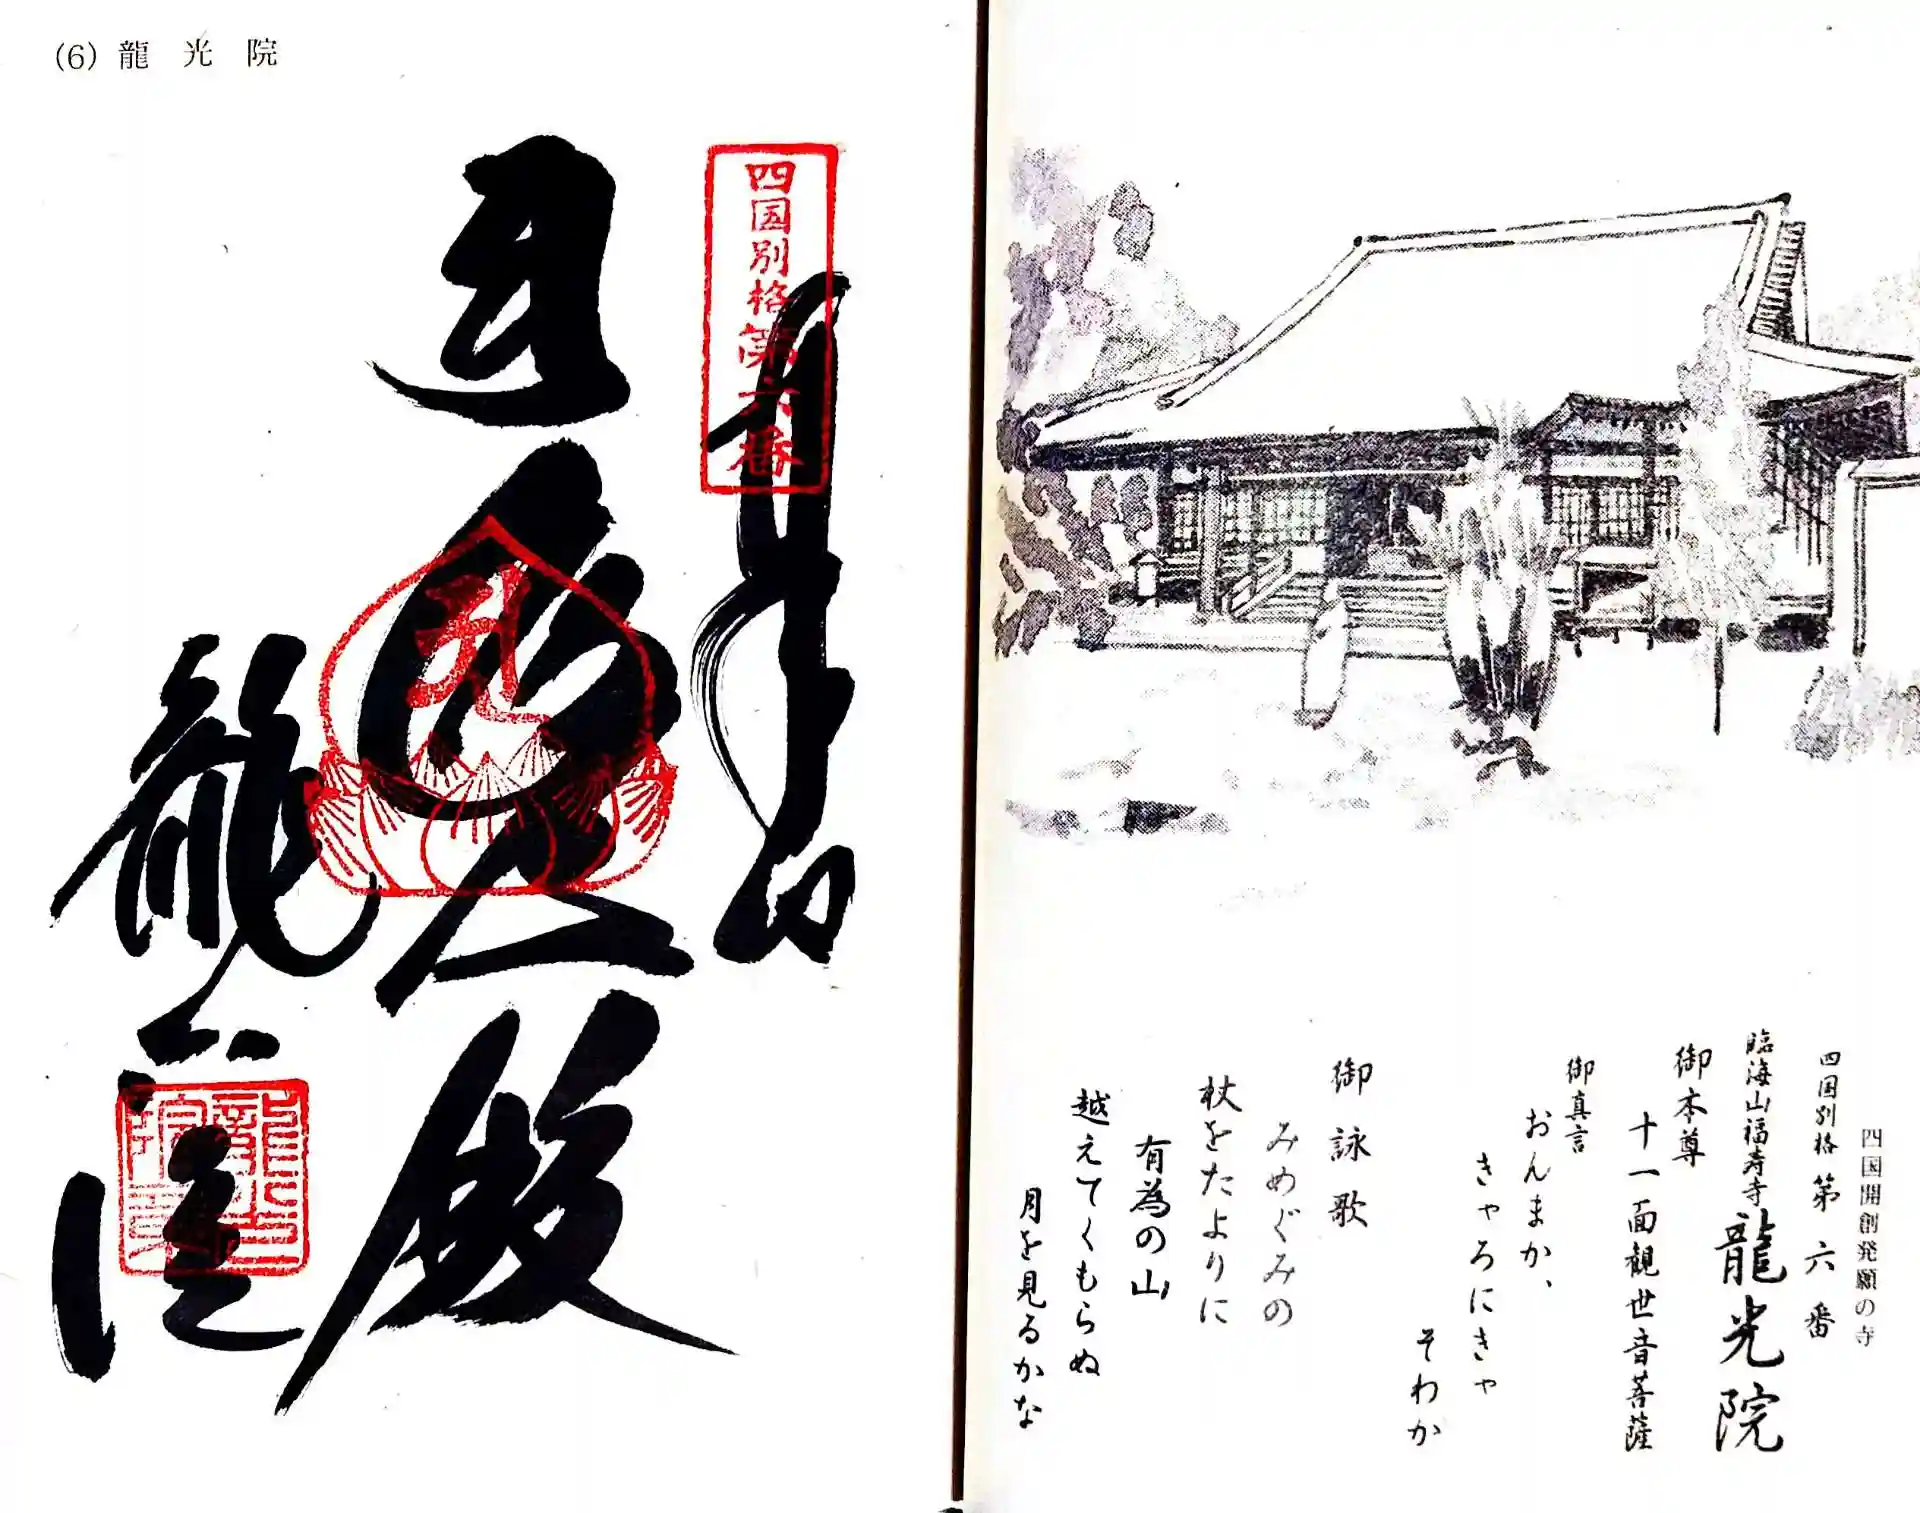 (6) 龍光院
四国別格第六番
奉拝
大悲殿
龍光院
龍光院章
四国開創発願の寺
四国別格第六番
臨海山福寿寺龍光院
御本尊
十一面観世音菩薩
御真言
おんまか、
きゃろにきゃ
そわか
御詠歌
みめぐみの
杖をたよりに
有為の山
越えてくもらぬ
月を見るかな